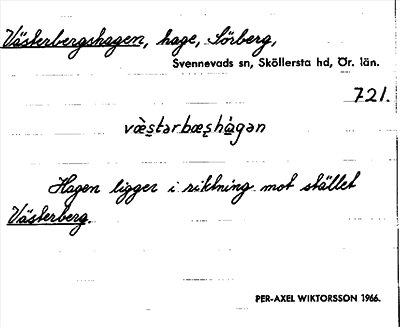 Västerbergshagen, hage, Sörberg,
Svennevads sn, Sköllersta hd, Ör. län.
721.
væ̀s̠tərbæs̠hà̠gən
Hagen ligger i riktning mot stället
Västerberg.
PER-AXEL WIKTORSSON 1966.